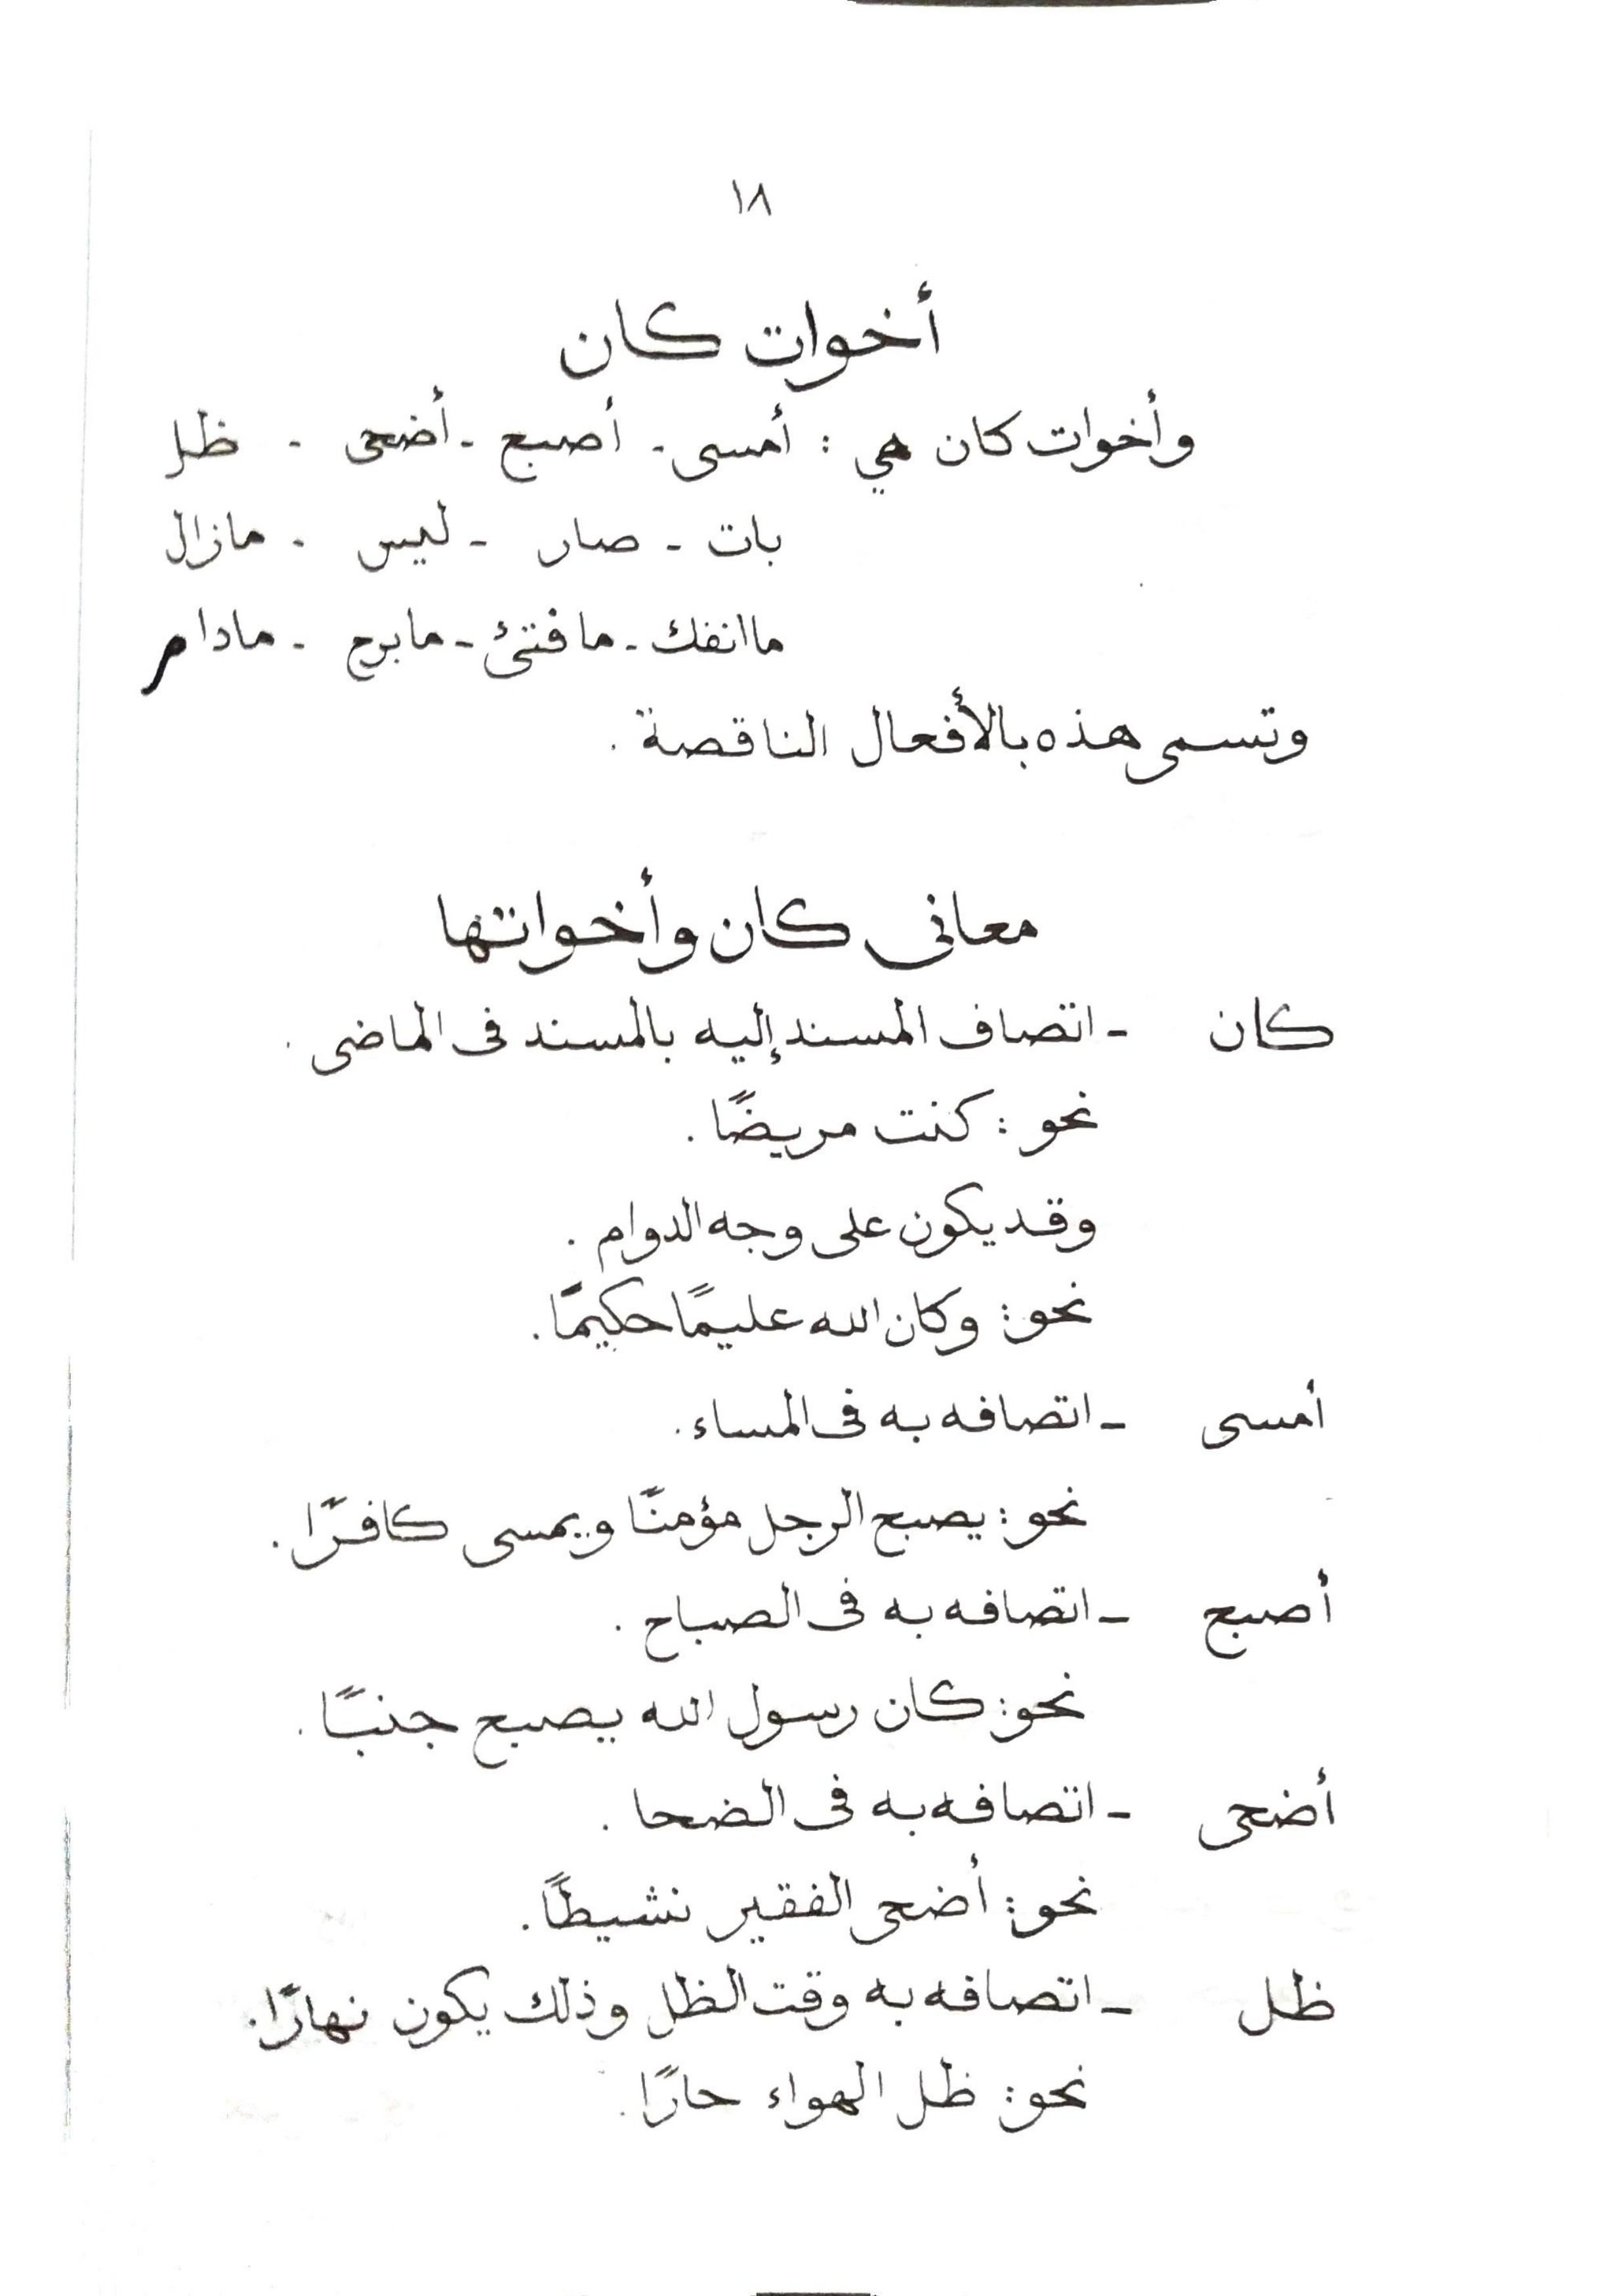 ١٨
أخوات كان
وأخوات كان هي : أمسى - أصبح - أضحى - ظل
بات - صار - ليس - مازال
ماانفك - مافتئ - مابرح - مادام
وتسمى هذه بالأفعال الناقصة .
معانى كان وأخواتها
كان - اتصاف المسند إليه بالمسند فى الماضى .
نحو : كنت مريضًا .
وقد يكون على وجه الدوام .
نحو : وكان الله عليمًا حكيمًا .
أمسى - اتصافه به فى المساء .
نحو : يصبح الرجل مؤمنًا ويمسى كافرًا .
أصبح - اتصافه به فى الصباح .
نحو : كان رسول الله يصبح جنبًا .
أضحى - اتصافه به فى الضحا .
نحو : أضحى الفقير نشيطًا .
ظل - اتصافه به وقت الظل وذلك يكون نهارًا .
نحو : ظل الهواء حارًا .